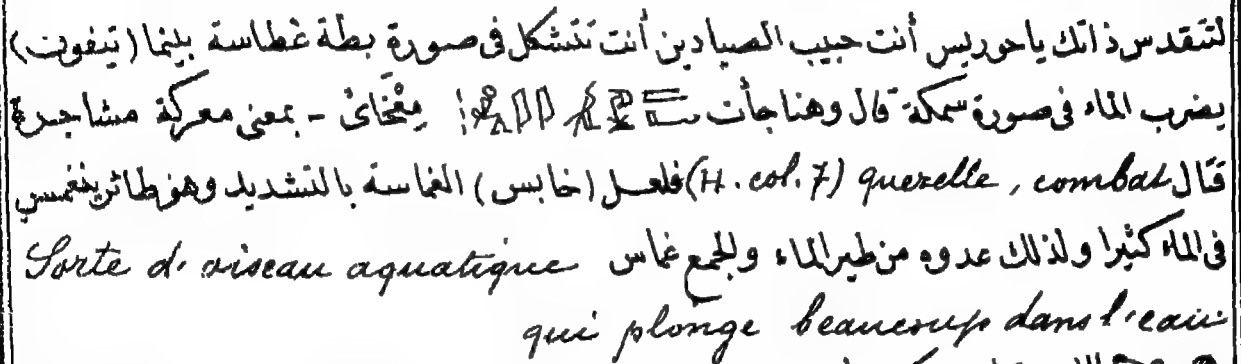 لتتقدس ذاتك ياحوريس أنت حبيب الصيادين أنت تتشكل فى صورة بطة غطاسة بينما (تيفون)
يضرب الماء فى صورة سمكة قال وهنا جأت - بمعنى معركة مشاجرة
قتال querelle, combat (H. col. 7) فلعل (خابس) الغماسة بالتشديد وهو طائر ينغمس
فى الماء كثيرا ولذلك عدوه من طير الماء والجمع غماس Sorte d'oiseau aquatique
qui plonge beaucoup dans l'eau